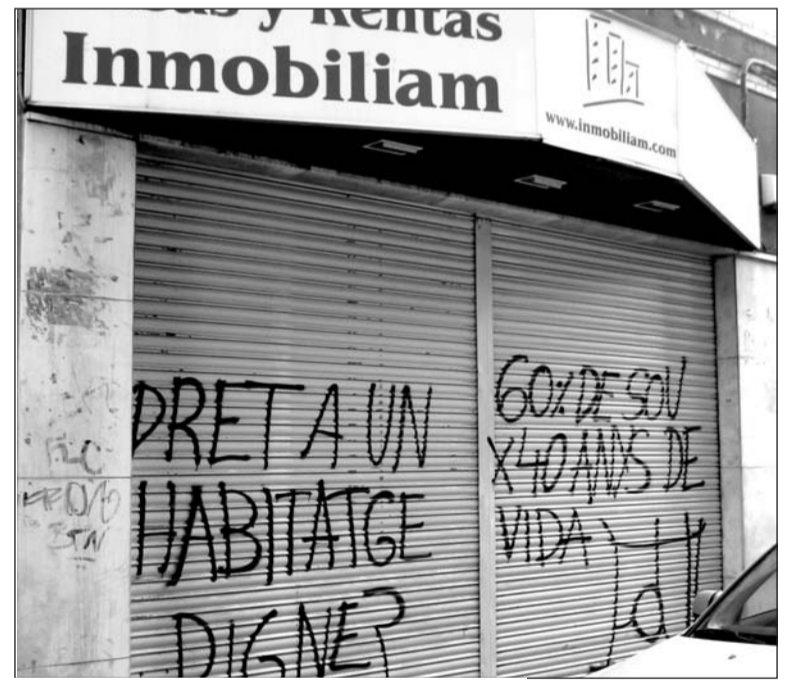 y Rentas
Inmobiliam
www.inmobiliam.com
DRET A UN
HABITATGE
DIGNE?
60% DE SOU
X40 ANYS DE
VIDA